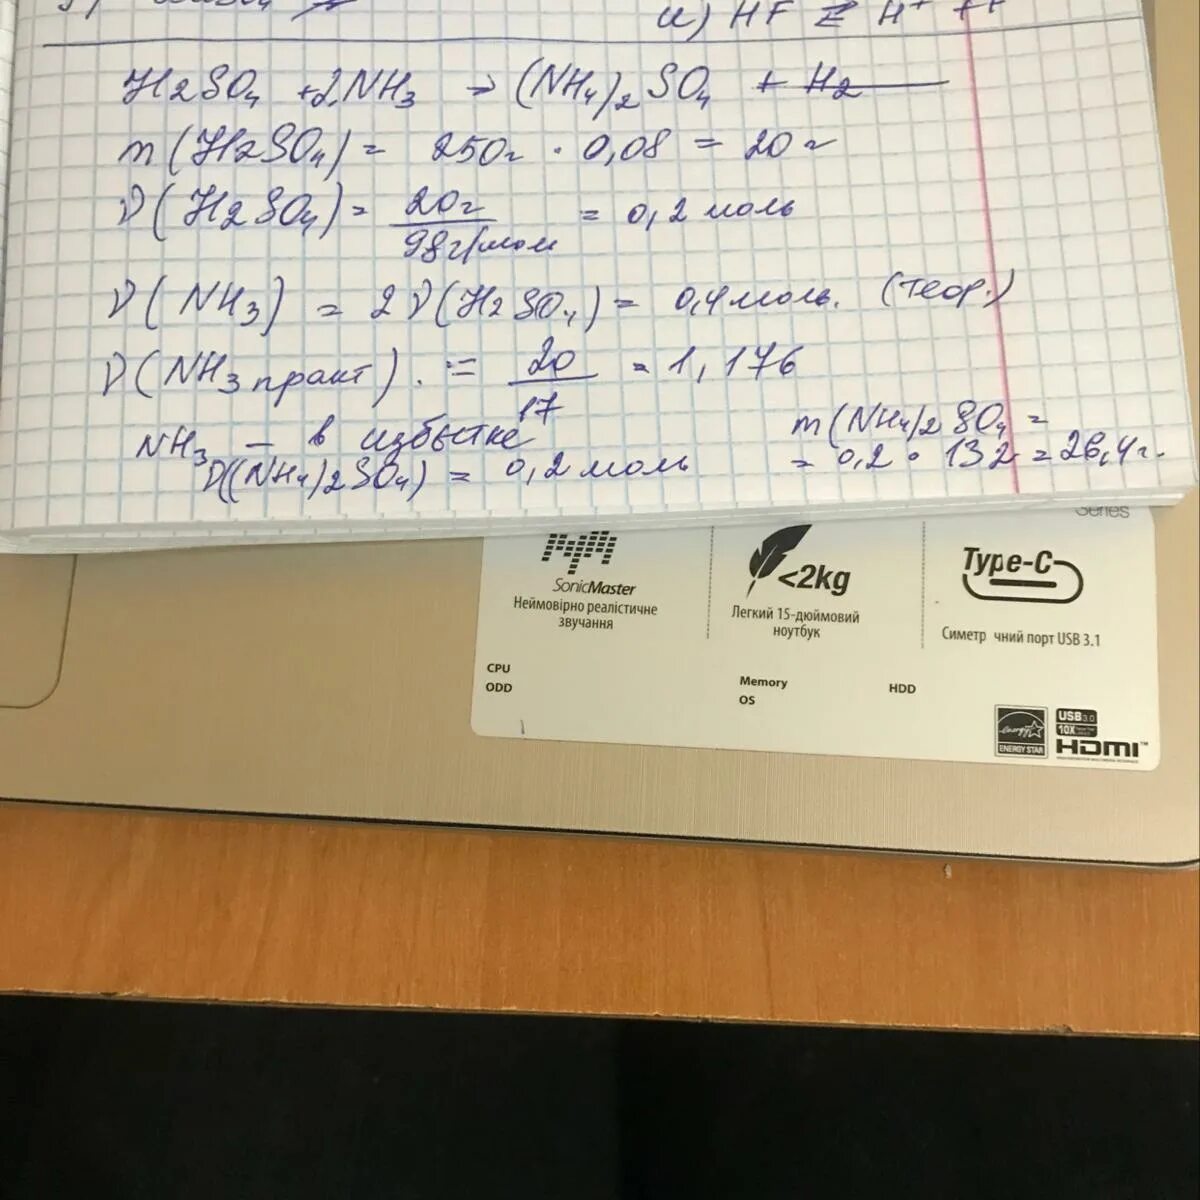 и) HF ⇄ H⁺
H2SO4 + 2NH3 → (NH4)2SO4 + H2
m (H2SO4) = 250г · 0,08 = 20 г
ν (H2SO4) = 20г / 98г/мол = 0,2 моль
ν (NH3) = 2ν (H2SO4) = 0,4 моль. (теор.)
ν (NH3 практ) . = 20 / 17 = 1,176
NH3 – в избытке
ν((NH4)2SO4) = 0,2 моль
m (NH4)2SO4 =
= 0,2 · 132 = 26,4 г.
Series
SonicMaster
Неймовірно реалістичне
звучання
<2kg
Легкий 15-дюймовий
ноутбук
Type-C
Симетр чний порт USB 3.1
CPU
ODD
Memory
OS
HDD
energy
ENERGY STAR
USB 3.0
10X
HDMI™